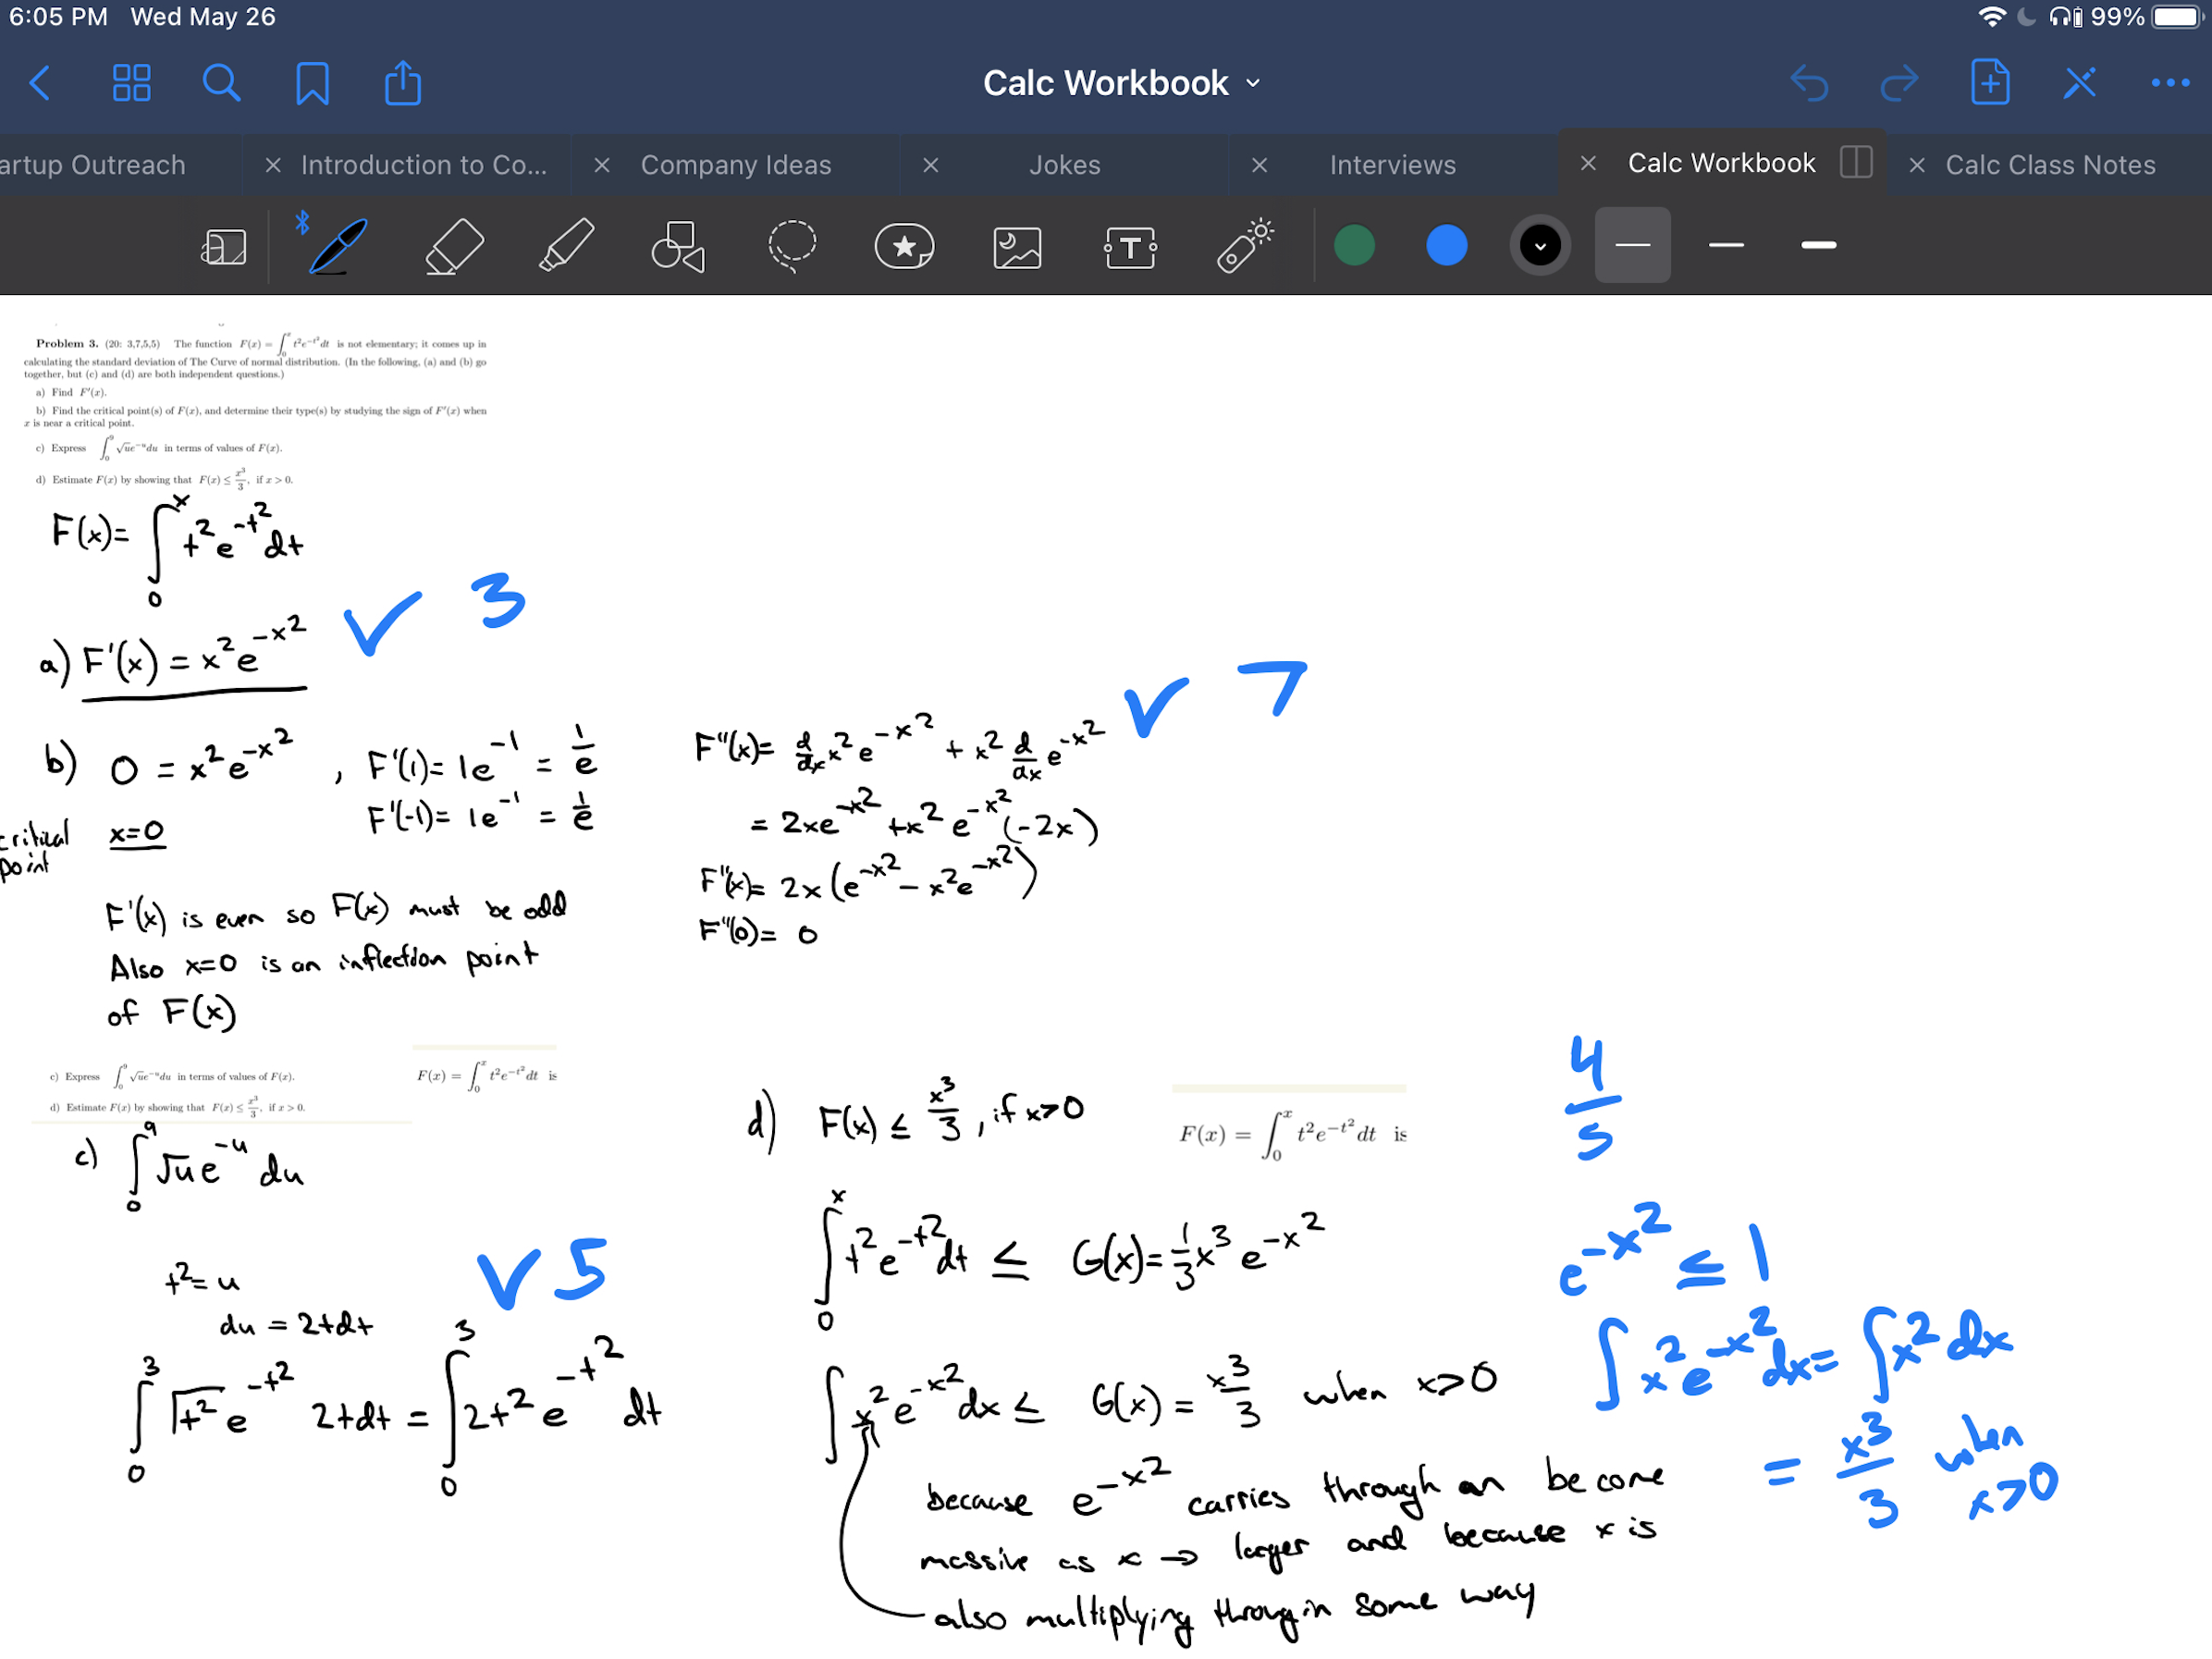 6:05 PM Wed May 26
99%
Calc Workbook
artup Outreach
Introduction to Co...
Company Ideas
Jokes
Interviews
Calc Workbook
Calc Class Notes
Problem 3. (20: 3,7,5,5) The function F(x) = ∫₀ˣ t²e^{-t²} dt is not elementary; it comes up in
calculating the standard deviation of The Curve of normal distribution. (In the following, (a) and (b) go
together, but (c) and (d) are both independent questions.)
a) Find F'(x).
b) Find the critical point(s) of F(x), and determine their type(s) by studying the sign of F'(x) when
x is near a critical point.
c) Express ∫₀⁹ √u e^{-u} du in terms of values of F(x).
d) Estimate F(x) by showing that F(x) ≤ x³/3, if x > 0.
F(x)= ∫₀ˣ t² e^{-t²} dt
a) F'(x) = x² e^{-x²} ✓ 3
b) 0 = x² e^{-x²} , F'(1)= 1e^{-1} = 1/e
F'(-1)= 1e^{-1} = 1/e
critical point x=0
F'(x) is even so F(x) must be odd
Also x=0 is an inflection point
of F(x)
F''(x)= d/dx x² e^{-x²} + x² d/dx e^{-x²} ✓ 7
= 2xe^{-x²} + x² e^{-x²} (-2x)
F''(x)= 2x (e^{-x²} - x² e^{-x²})
F''(0)= 0
c) Express ∫₀⁹ √u e^{-u} du in terms of values of F(x).
d) Estimate F(x) by showing that F(x) ≤ x³/3, if x > 0.
F(x) = ∫₀ˣ t²e^{-t²} dt is
c) ∫₀⁹ √u e^{-u} du
t²= u
du = 2tdt
✓ 5
∫₀³ √t² e^{-t²} 2tdt = ∫₀³ 2t² e^{-t²} dt
d) F(x) ≤ x³/3 , if x>0
F(x) = ∫₀ˣ t²e^{-t²} dt is
4/5
∫₀ˣ t² e^{-t²} dt ≤ G(x)= 1/3 x³ e^{-x²}
∫ x² e^{-x²} dx ≤ G(x) = x³/3 when x>0
because e^{-x²} carries through an be come
massive as x → larger and because x is
also multiplying throug in some way
e^{-x²} ≤ 1
∫ x² e^{-x²} dx = ∫ x² dx
= x³/3 when x>0